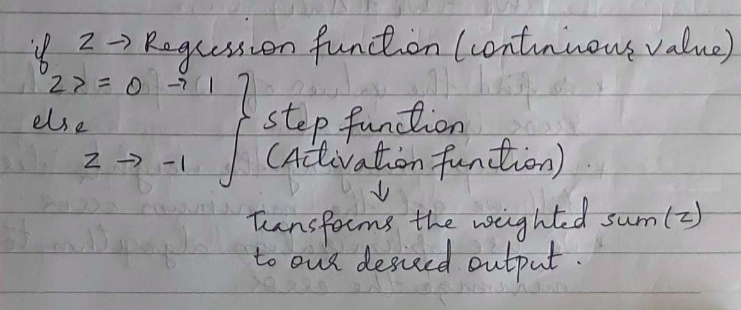 if z → Regression function (continuous value)
z >= 0 → 1
else
step function
z → -1
(Activation function).
↓
Transforms the weighted sum (z)
to our desired output.